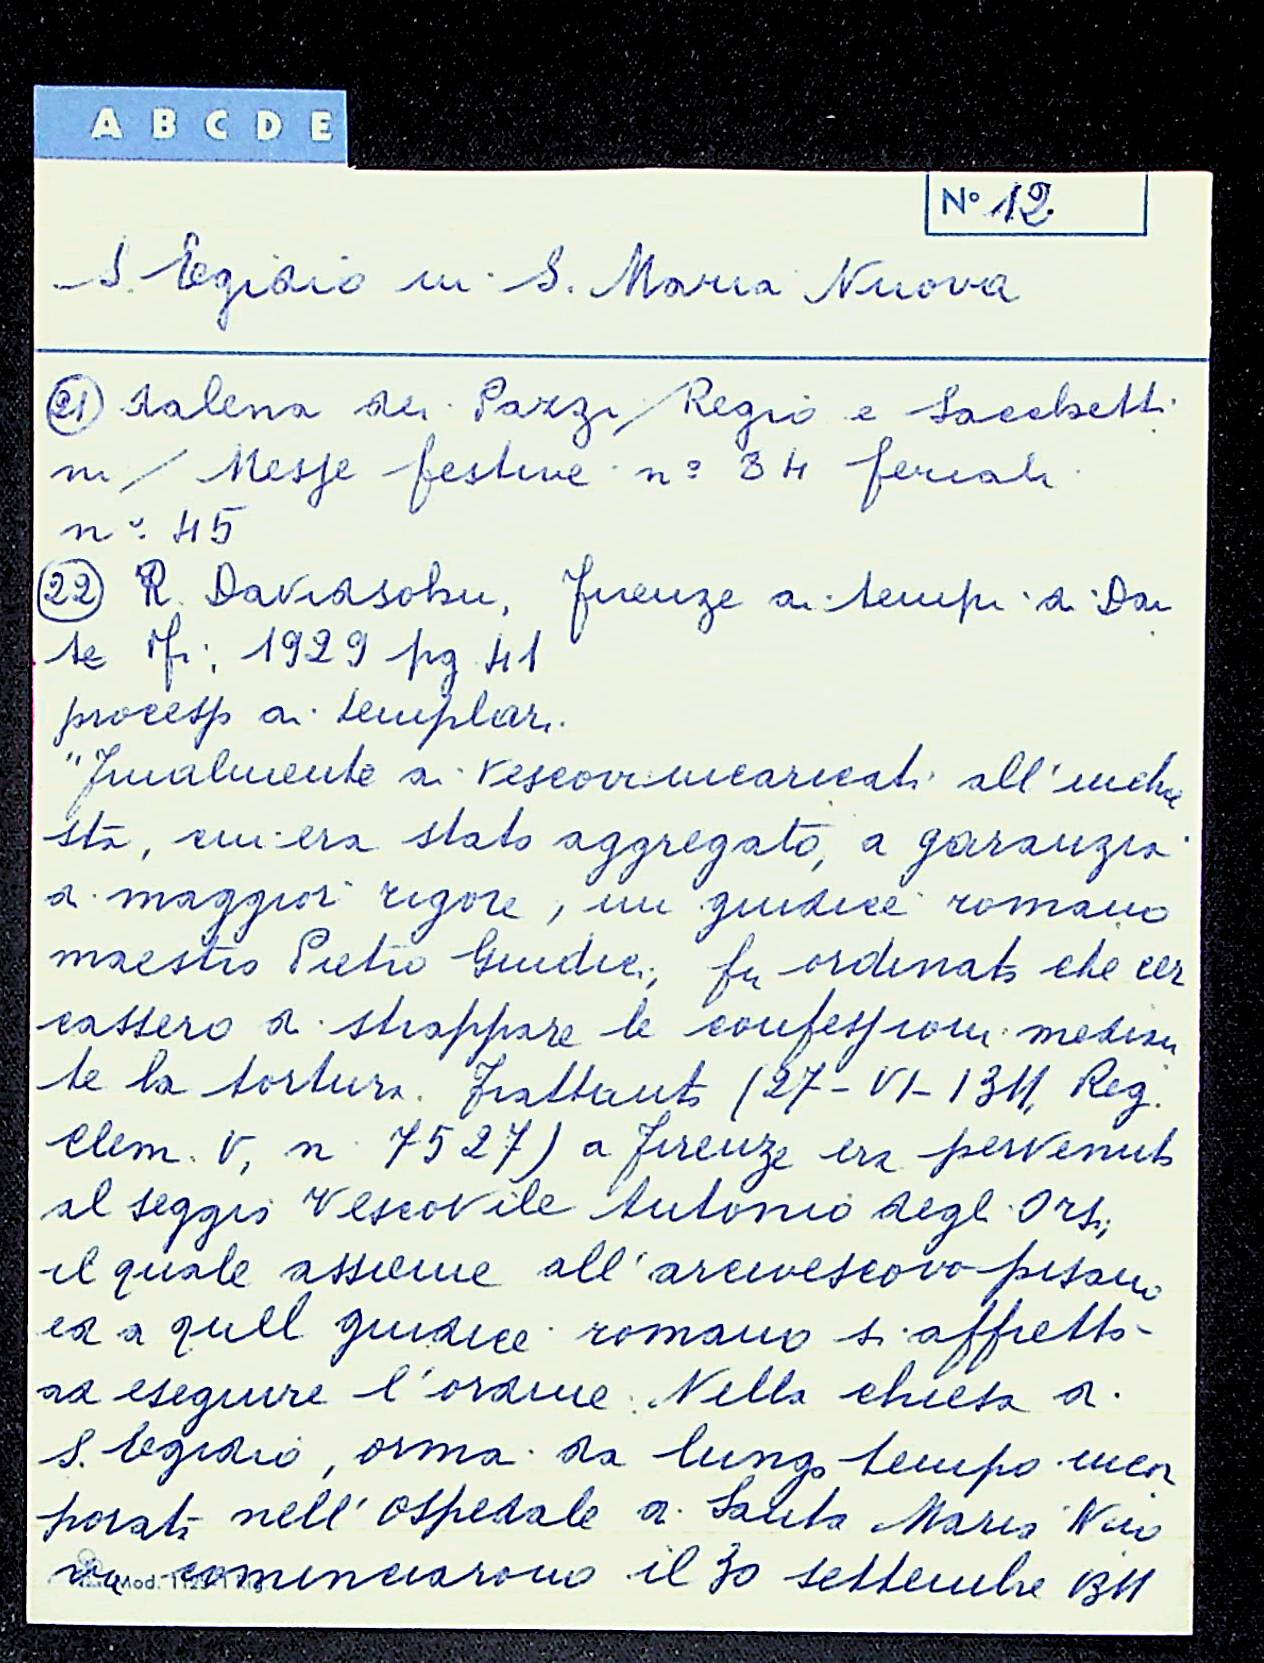 A B C D E
N° 12
S. Egidio in S. Maria Nuova
21 dalena dei Pazzi / Regio e Sacchetti
ni / Messe festive n° 34 feriali
n° 45
22 R. Davidsohn, Firenze ai tempi di Dan
te Fi, 1929 pg 41
processo ai templari.
"Finalmente ai vescovi incaricati all'inchie
sta, cui era stato aggregato, a garanzia
di maggior rigore, un giudice romano
maestro Pietro Giudici, fu ordinato che cer
cassero di strappare le confessioni median
te la tortura. Frattanto (27-VI-1311, Reg.
Clem. V, n 7527) a Firenze era pervenuto
al seggio vescovile Antonio degli Orsi,
il quale assieme all'arcivescovo pisano
ed a quell giudice romano si affrettò
ad eseguire l'ordine. Nella chiesa di
S. Egidio, ormai da lungo tempo incor
porata nell'Ospedale di Santa Maria Nuo
va cominciarono il 30 settembre 1311
Mod.